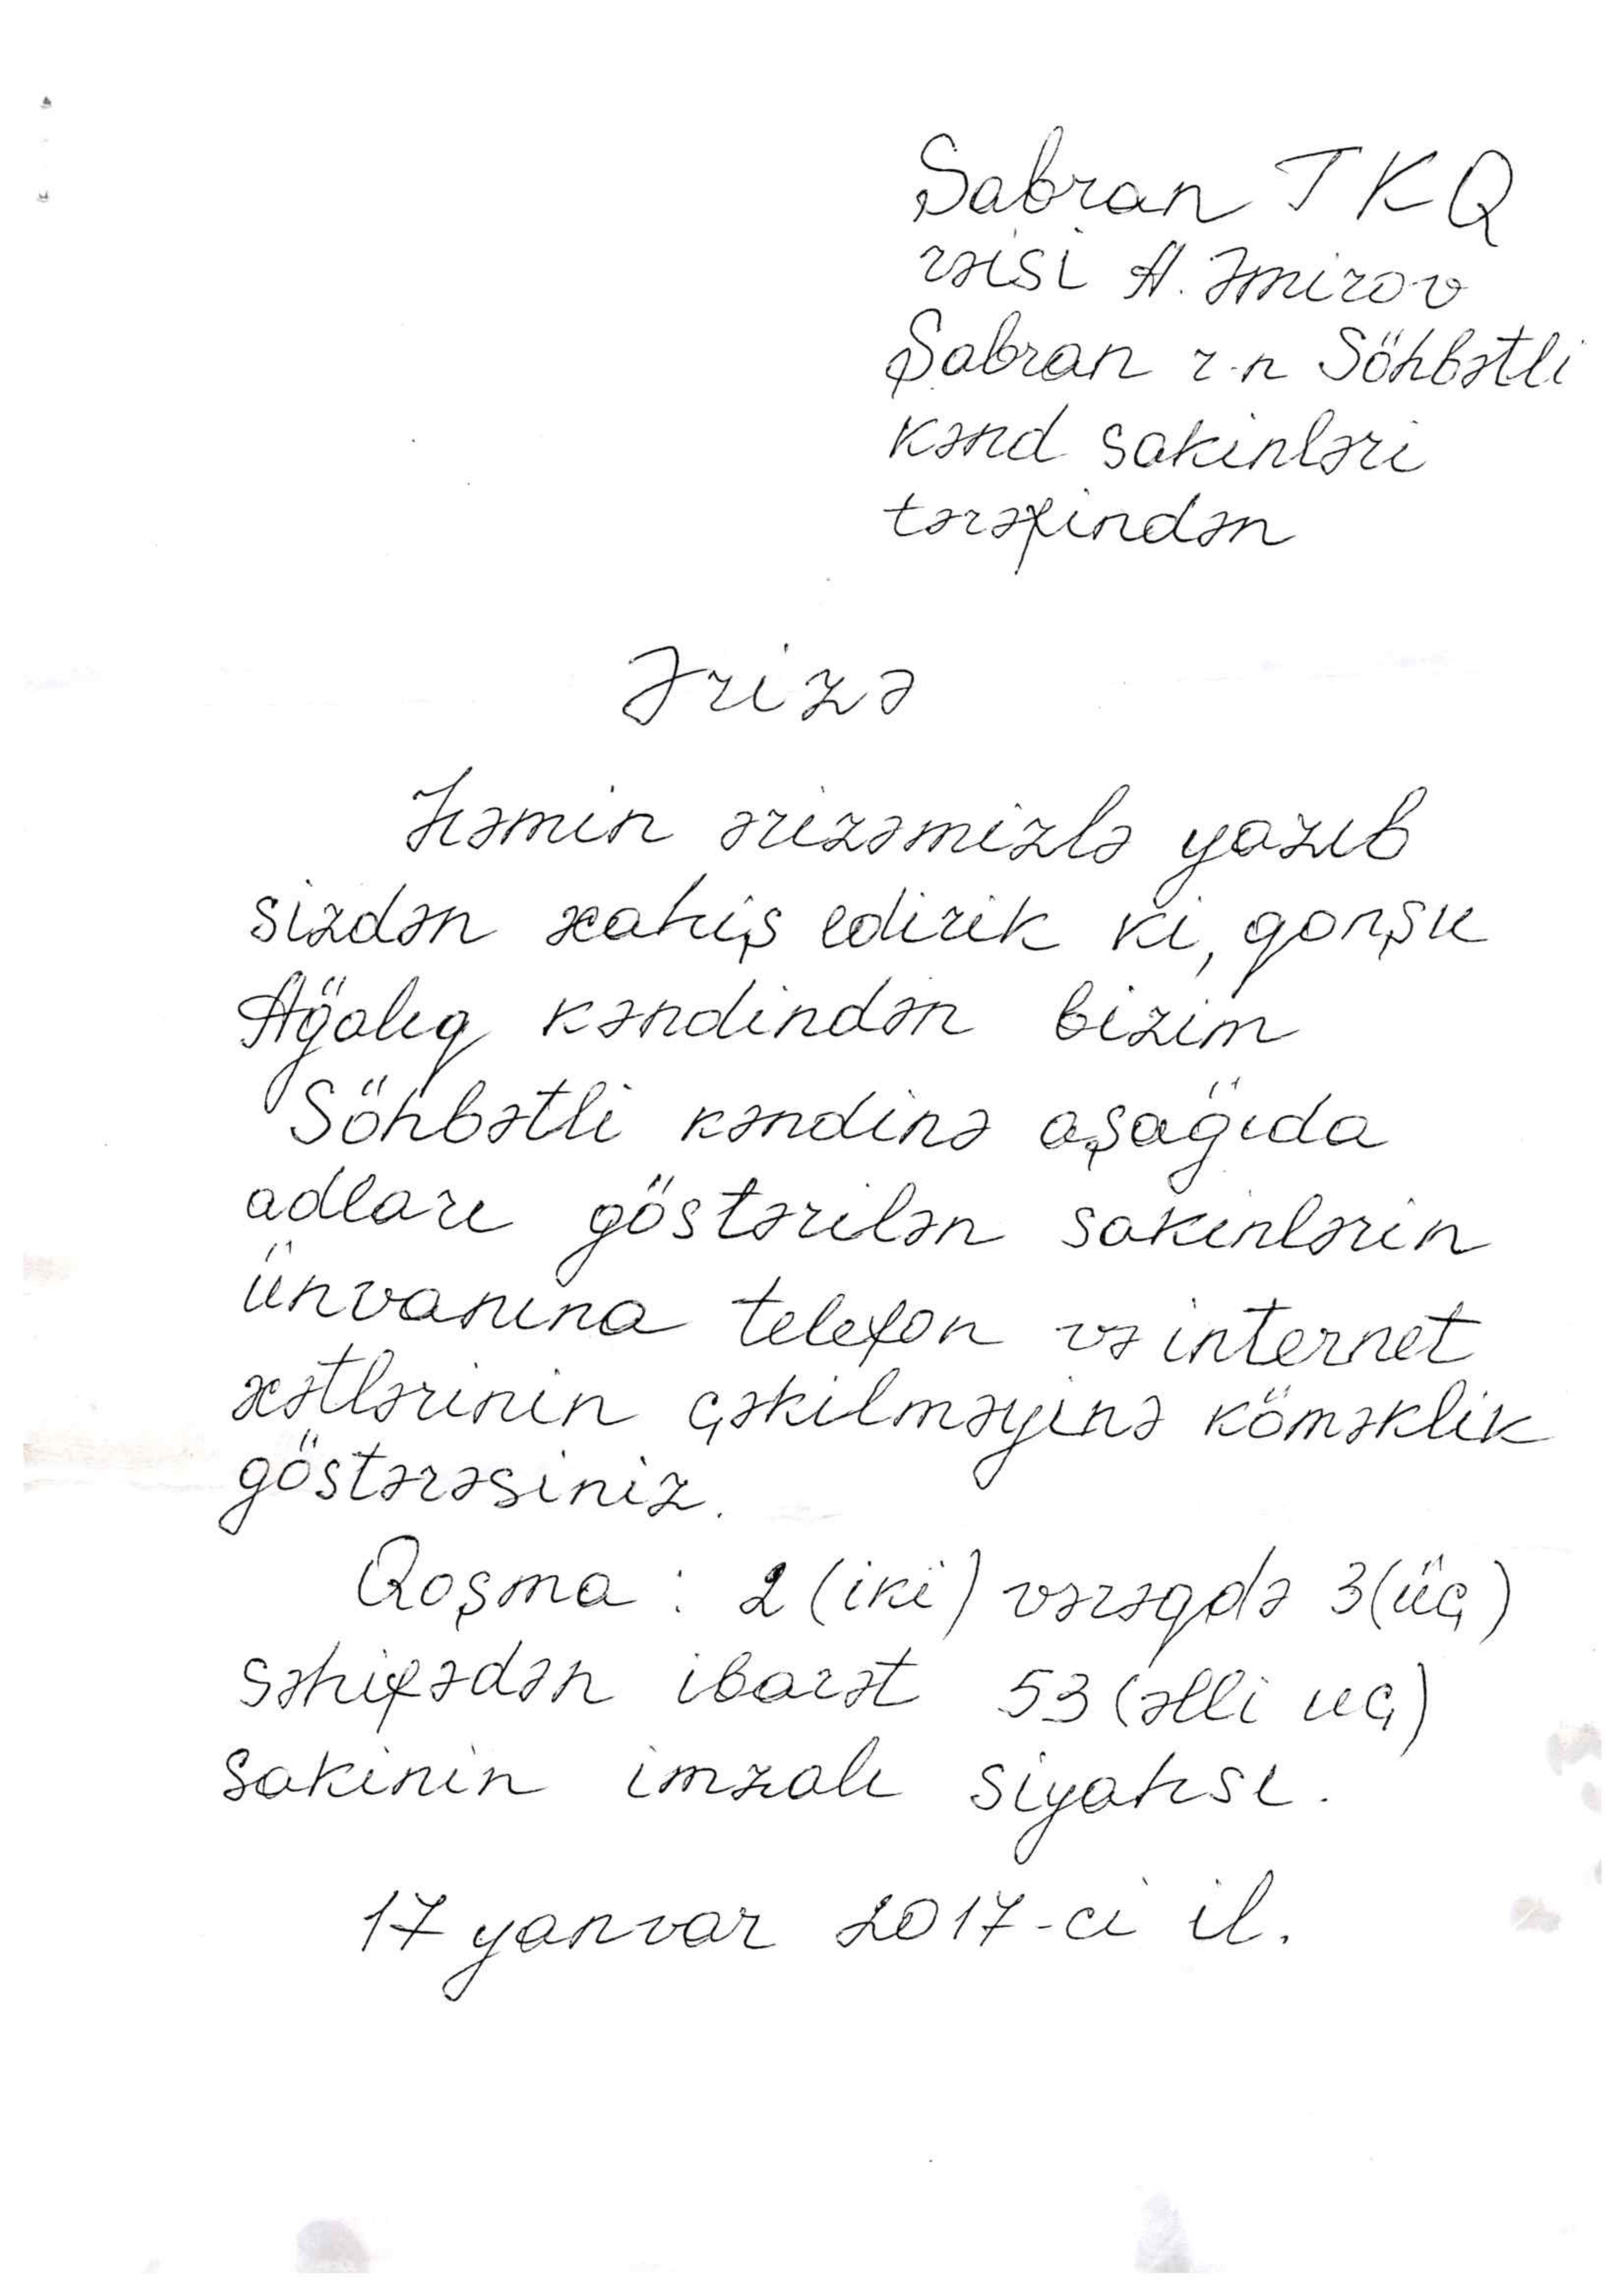 Sabran TKQ
rəisi A. Əmirov
Şabran r-n Söhbətli
kənd sakinləri
tərəfindən
Ərizə
Həmin ərizəmizlə yazıb
sizdən xahiş edirik ki, qonşu
Ağalıq kəndindən bizim
Söhbətli kəndinə aşağıda
adları göstərilən sakinlərin
ünvanına telefon və internet
xətlərinin çəkilməyinə köməklik
göstərəsiniz.
Qoşma : 2 (iki) vərəqdə 3 (üç)
səhifədən ibarət 53 (əlli uç)
sakinin imzalı siyahsı.
17 yanvar 2017-ci il.